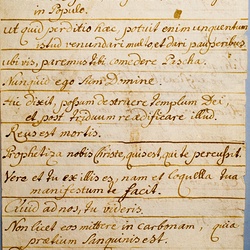 in Populo.
ut quid perditio hæc, potuit enim unquentum
istud venundari multo, et dari pauperibus
ubi vis, paremus tibi comedere Pascha.
Nunquid ego sum Domine
Hic dixit, possum destruere Templum Dei,
et post triduum reædificare illud.
Reus est mortis.
Prophetiza nobis Christe, quis est, qui te percussit.
Vere et tu ex illis es, nam et loquella tua
manifestum te facit.
Quid ad nos, tu videris.
Non licet eos mittere in carbonam, quia
prætium Sanguinis est.